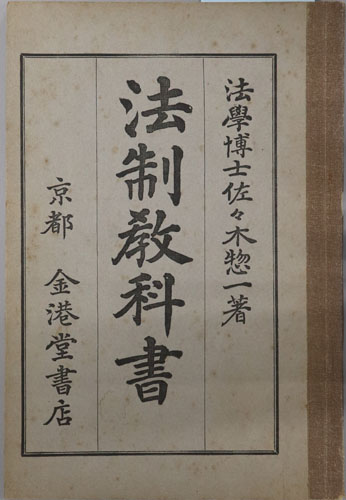 法學博士佐々木惣一著
法制敎科書
京都 金港堂書店